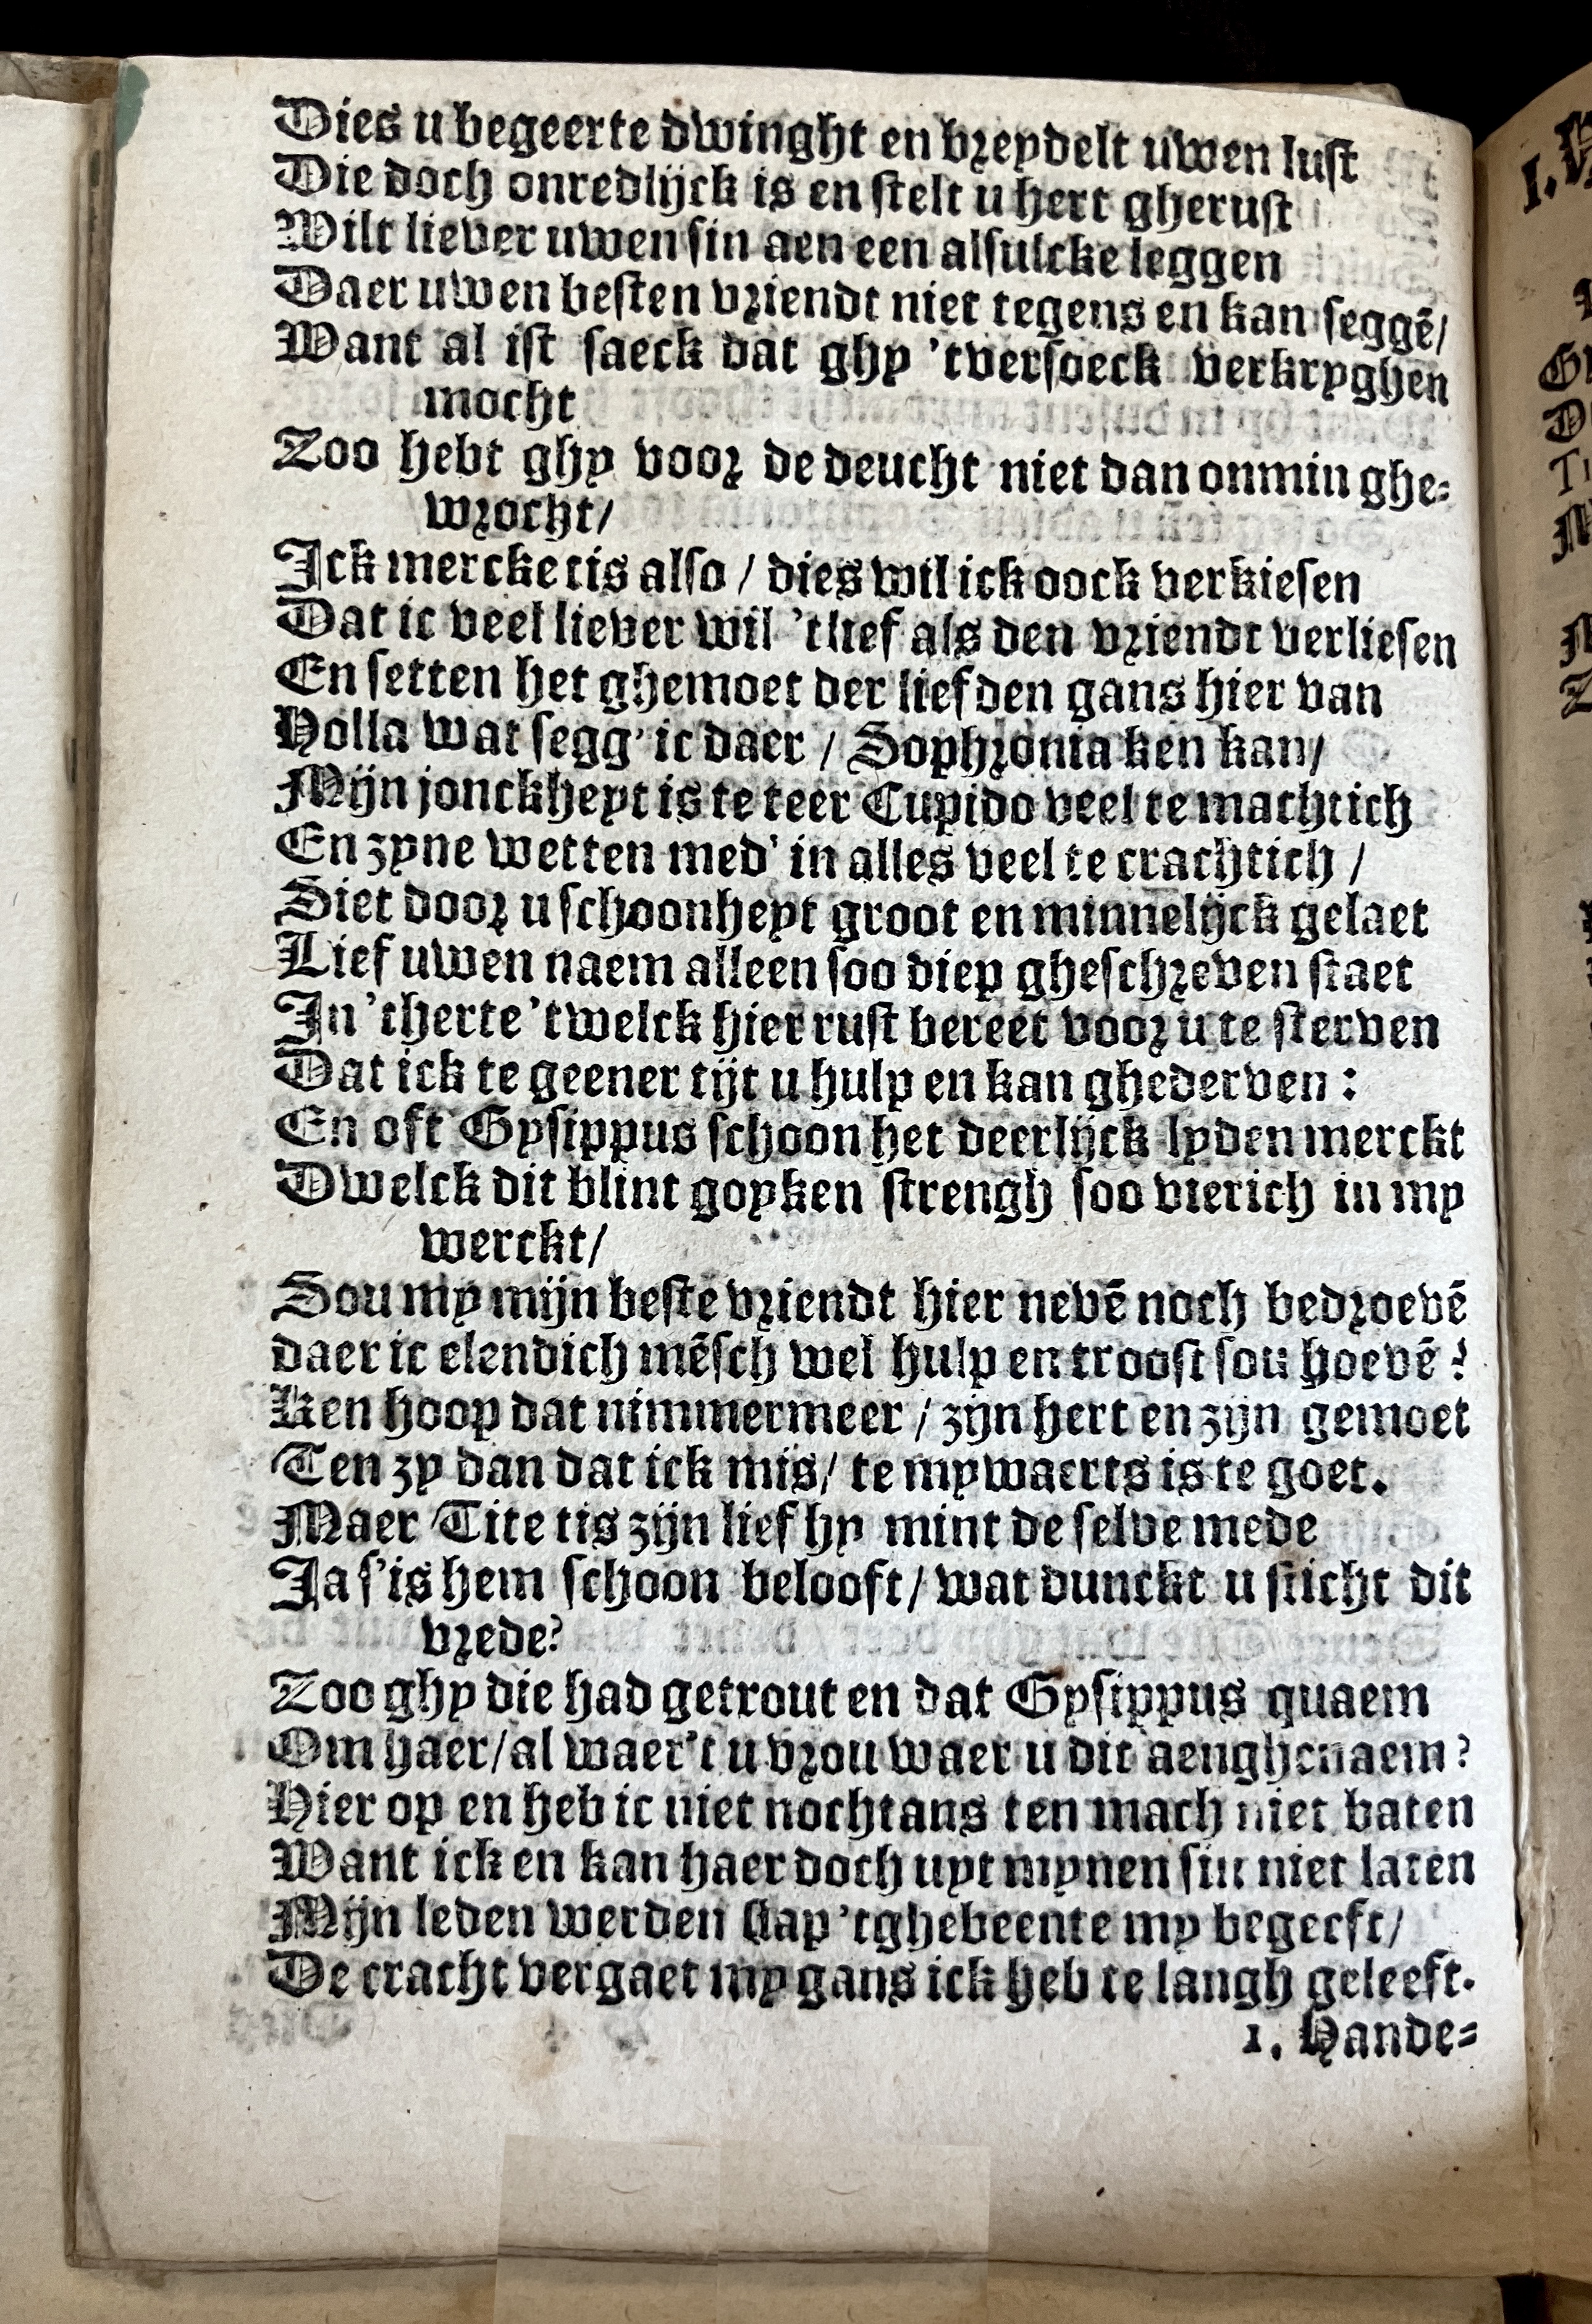 Dies u begeerte dwinght en breydelt uwen lust
Die doch onredlijck is en stelt u hert gherust
Wilt liever uwen sin aen een alsulcke leggen
Daer uwen besten vriendt niet tegens en kan seggē/
Want al ist saeck dat ghy 'tversoeck verkryghen
mocht
Zoo hebt ghy voor de deucht niet dan onmin ghe=
wrocht/
Ick mercke tis also / dies wil ick oock verkiesen
Dat ic veel liever wil 'tlief als den vriendt verliesen
En setten het ghemoet der liefden gans hier van
Holla wat segg' ic daer / Sophronia ken kan/
Mijn jonckheyt is te teer Cupido veel te machtich
En zyne wetten med' in alles veel te crachtich /
Siet door u schoonheyt groot en minnelijck gelaet
Lief uwen naem alleen soo diep gheschreven staet
In 'therte 'twelck hier rust bereet voor u te sterven
Dat ick te geener tijt u hulp en kan ghederven :
En oft Gysippus schoon het deerlijck lyden merckt
Dwelck dit blint goyken strengh soo vierich in my
werckt/
Sou my mijn beste vriendt hier nevē noch bedroevē
daer ic elendich mēsch wel hulp en troost sou hoevē ?
Ken hoop dat nimmermeer / zijn hert en zijn gemoet
Ten zy dan dat ick mis/ te mywaerts is te goet.
Maer Tite tis zijn lief hy mint de selve mede
Ja s'is hem schoon belooft/ wat dunckt u sticht dit
vrede?
Zoo ghy die had getrout en dat Gysippus quaem
Om haer/ al waer't u vrou waer u dit aenghenaem?
Hier op en heb ic niet nochtans ten mach niet baten
Want ick en kan haer doch uyt mynen sin niet laten
Mijn leden werden slap 'tghebeente my begeeft/
De cracht vergaet my gans ick heb te langh geleeft.
1. Hande=